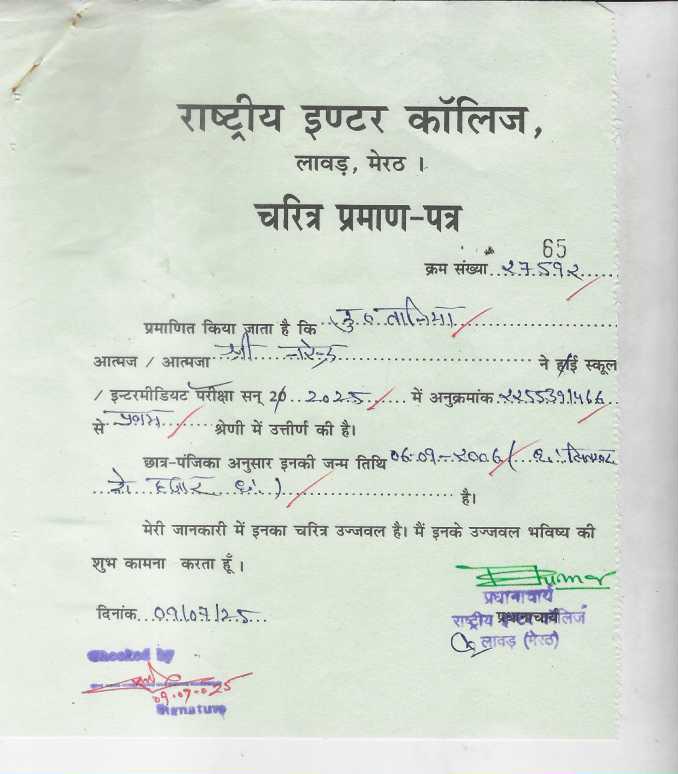 राष्ट्रीय इण्टर कॉलिज,
लावड़, मेरठ ।
चरित्र प्रमाण-पत्र
65
क्रम संख्या २७५१२
प्रमाणित किया जाता है कि कु० तानिमा
आत्मज / आत्मजा श्री नरेन्द्र ने हाई स्कूल
/ इन्टरमीडियट परीक्षा सन् 20 2025 में अनुक्रमांक
से प्रथम श्रेणी में उत्तीर्ण की है।
छात्र-पंजिका अनुसार इनकी जन्म तिथि ०६-०९-२००६ ( छः सितम्बर
दो हजार छः ) है।
मेरी जानकारी में इनका चरित्र उज्जवल है। मैं इनके उज्जवल भविष्य की
शुभ कामना करता हूँ ।
Kumar
प्रधानाचार्य
दिनांक 09/07/25
राष्ट्रीय लिज
लावड़ (मेरठ)
Checked by
09-07-25
Signature